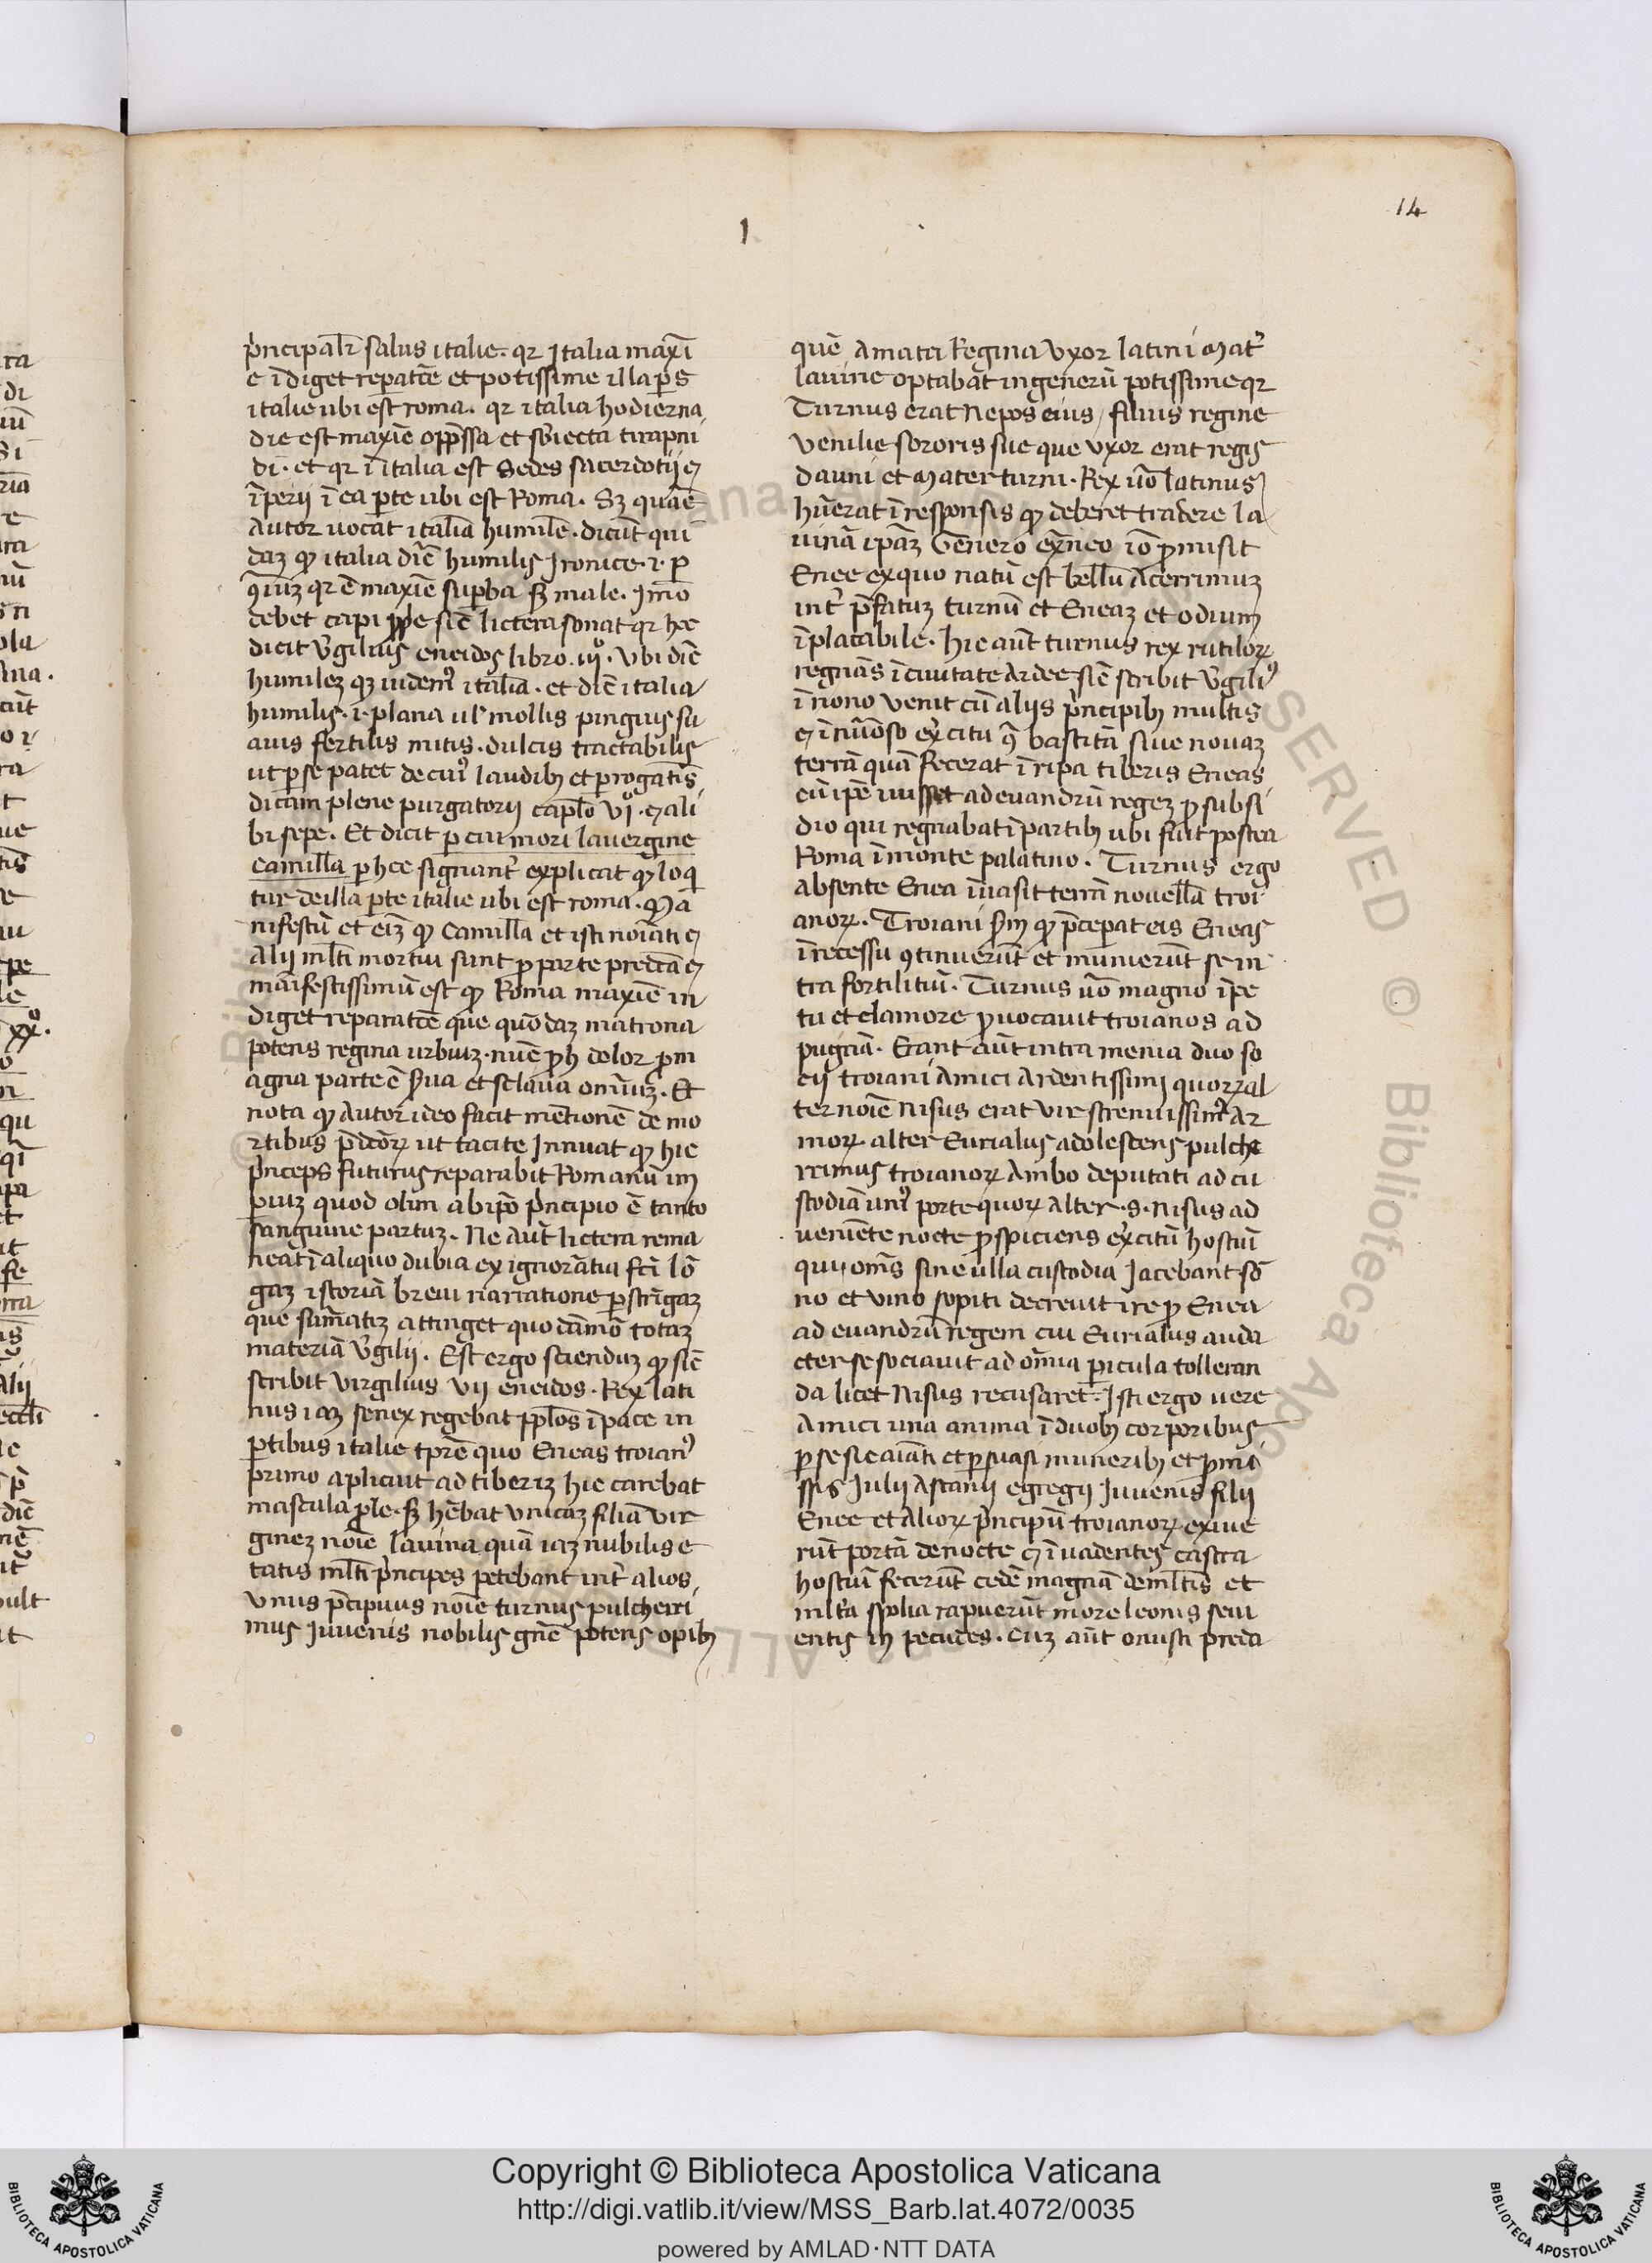 14
1
p̓ncipal̓r salus italie. qr Italia maxī
e īdiget repatōe et potissime illa ꝑs
italie ubi est roma. qr italia hodierna
die est maxīe opp̄ssa et sb̓iecta tirapni
di. et qr ī italia est sedes sacerdotij ⁊
īperij ī ea ꝑte ubi est Roma. Sꝫ quāe
autor uocat italiā humilē. dicūt qui
daꝫ ꝙ italia dr̄e humilis Ironice. i. ꝑ
ꝯ̓iuꝫ qr ē maxīe suꝑba sꝫ male. Imō
debet capi ꝓpe sic̄ lictera sonat qr hec
dicit v̓gilius eneidos libro .iijͦ. Vbi dic̄
humileꝫ qꝫ uidemꝰ italiā. et dic̄ italia
humilis. i. plana ul̓ mollis pinguis su
auis fertilis mitis. dulcis tractabilis
ut ꝑ se patet de cuiꝰ laudibꝫ et p̄rogatīs
dicam plene purgatorij capl̓o viͦ. ⁊ ali
bi sepe. Et dicit per cui mori la uergine
camilla ꝑ hec signāt̓ explicat ꝙ loq
tur de illa ꝑte italie ubi est roma. Ma
nifestū et eīꝫ ꝙ Camilla et isti noīati ⁊
alij ml̓ti mortui sunt ꝓ parte predc̄a ⁊
maīfestissimū est ꝙ Roma maxīe in
diget reparatōe que quōdaꝫ matrona
potens regina urbiuꝫ. nūc ꝓh dolor ꝓ m
agna parte ē s̓ua et sclaua omīuꝫ. Et
nota ꝙ autor ideo facit mētionē de mo
rtibus p̄dc̄oꝝ ut tacite Innuat ꝙ hic
p̓nceps futurus reparabit Romanū im
ꝑiuꝫ quod olim ab ip̄o p̓ncipio ē tanto
sanguine partuꝫ. Ne aūt lictera rema
neat ī aliquo dubia ex ignorātia fcī lō
gaꝫ istoriā breui narratione ꝑstrīgaꝫ
que sūmatiꝫ attinget quodāmō totaꝫ
materiā v̓gilij. Est ergo sciendūꝫ ꝙ sic̄
scribit virgilius vij eneidos. Rex lati
nus iaꝫ senex regebat ppl̓os ī pace in
ꝑtibus italie tp̄re quo Eneas troianꝰ
primo aplicuit ad tiberiꝫ hic carebat
mascula ꝓle. sꝫ hēbat unicaꝫ filiā vir
gineꝫ noīe lauina quā iaꝫ nubilis e
tatis ml̓ti p̓ncipes petebant int̓ alios
vnus p̄cipuus noīe turnus pulcherri
mus Iuuenis nobilis gn̄e potens opibꝫ
quē Amata Regina Vxor latini Mat̓
lauine optabat in generū potissime qr
Turnus erat Nepos eius / filius regine
Venilie sororis sue que vxor erat regis
dauni et Mater turni. Rex ūo latinus
hūerat ī responsis ꝙ deberet tradere la
uinā ip̄aꝫ Genero ext̄neo iō ꝓmisit
Enee ex quo natū est bellū Acerrimuꝫ
int̓ p̄fatuꝫ turnū et Eneaꝫ et odium
īplacabile. Hic aūt turnus rex rutiloꝝ
regnās ī ciuitate Ardee sic̄ scribit v̓giliꝰ
ī nono venit cū alijs p̓ncipibꝫ multis
⁊ īnūōso ex̓citu ꝯ̓ bastitā siue nouaꝫ
terrā quā fecerat ī ripa tiberis Eneas
cū ip̄e iuisset ad euandrū regeꝫ ꝓ subsi
dio qui regnabat ī partibꝫ ubi fuit postea
Roma ī monte palatino. Turnus ergo
absente Enea īuasit terrā nouellā troi
anoꝝ. Troiani s̓m ꝙ p̄ceperat eis Eneas
ī recessu ꝯtinuerūt et munierūt se in
tra fortilitiū. Turnus ūo magno īpe
tu et clamore ꝓuocauit troianos ad
pugnā. Erant aūt intra menia duo so
cij troiani Amici Ardentissimi quoꝝ al
ter noīe Nisus erat vir strenuissimꝰ Ar
moꝝ alter Eurialus adolescens pulche
rrimus troianoꝝ Ambo deputati ad cu
stodiā uniꝰ porte quoꝝ alter .s. Nisus ad
ueniēte nocte ꝓspiciens ex̓citū hostiū
qui om̄s sine ulla custodia Iacebant sō
no et vino sopiti decreuit ire ꝓ Enea
ad euandrū regem cui Eurialus auda
cter se sociauit ad om̄ia ꝑicula tolleran
da licet Nisus recusaret. Isti ergo uere
Amici una anima ī duobꝫ corporibus
ꝑ se sic aīati et ꝑsuasi muneribꝫ et ꝓmi
ssis Iulij Ascanij egregij Iuuenis filij
Enee et Alioꝝ p̓ncipū troianoꝝ exiue
rūt portā de nocte ⁊ īuadentes castra
hostiū fecerūt cedē magnā de ml̓tis et
ml̓ta spolia rapuerūt more leonis seui
entis in pecudes. Cuꝫ aūt onusti preda
Copyright © Biblioteca Apostolica Vaticana
http://digi.vatlib.it/view/MSS_Barb.lat.4072/0035
powered by AMLAD·NTT DATA